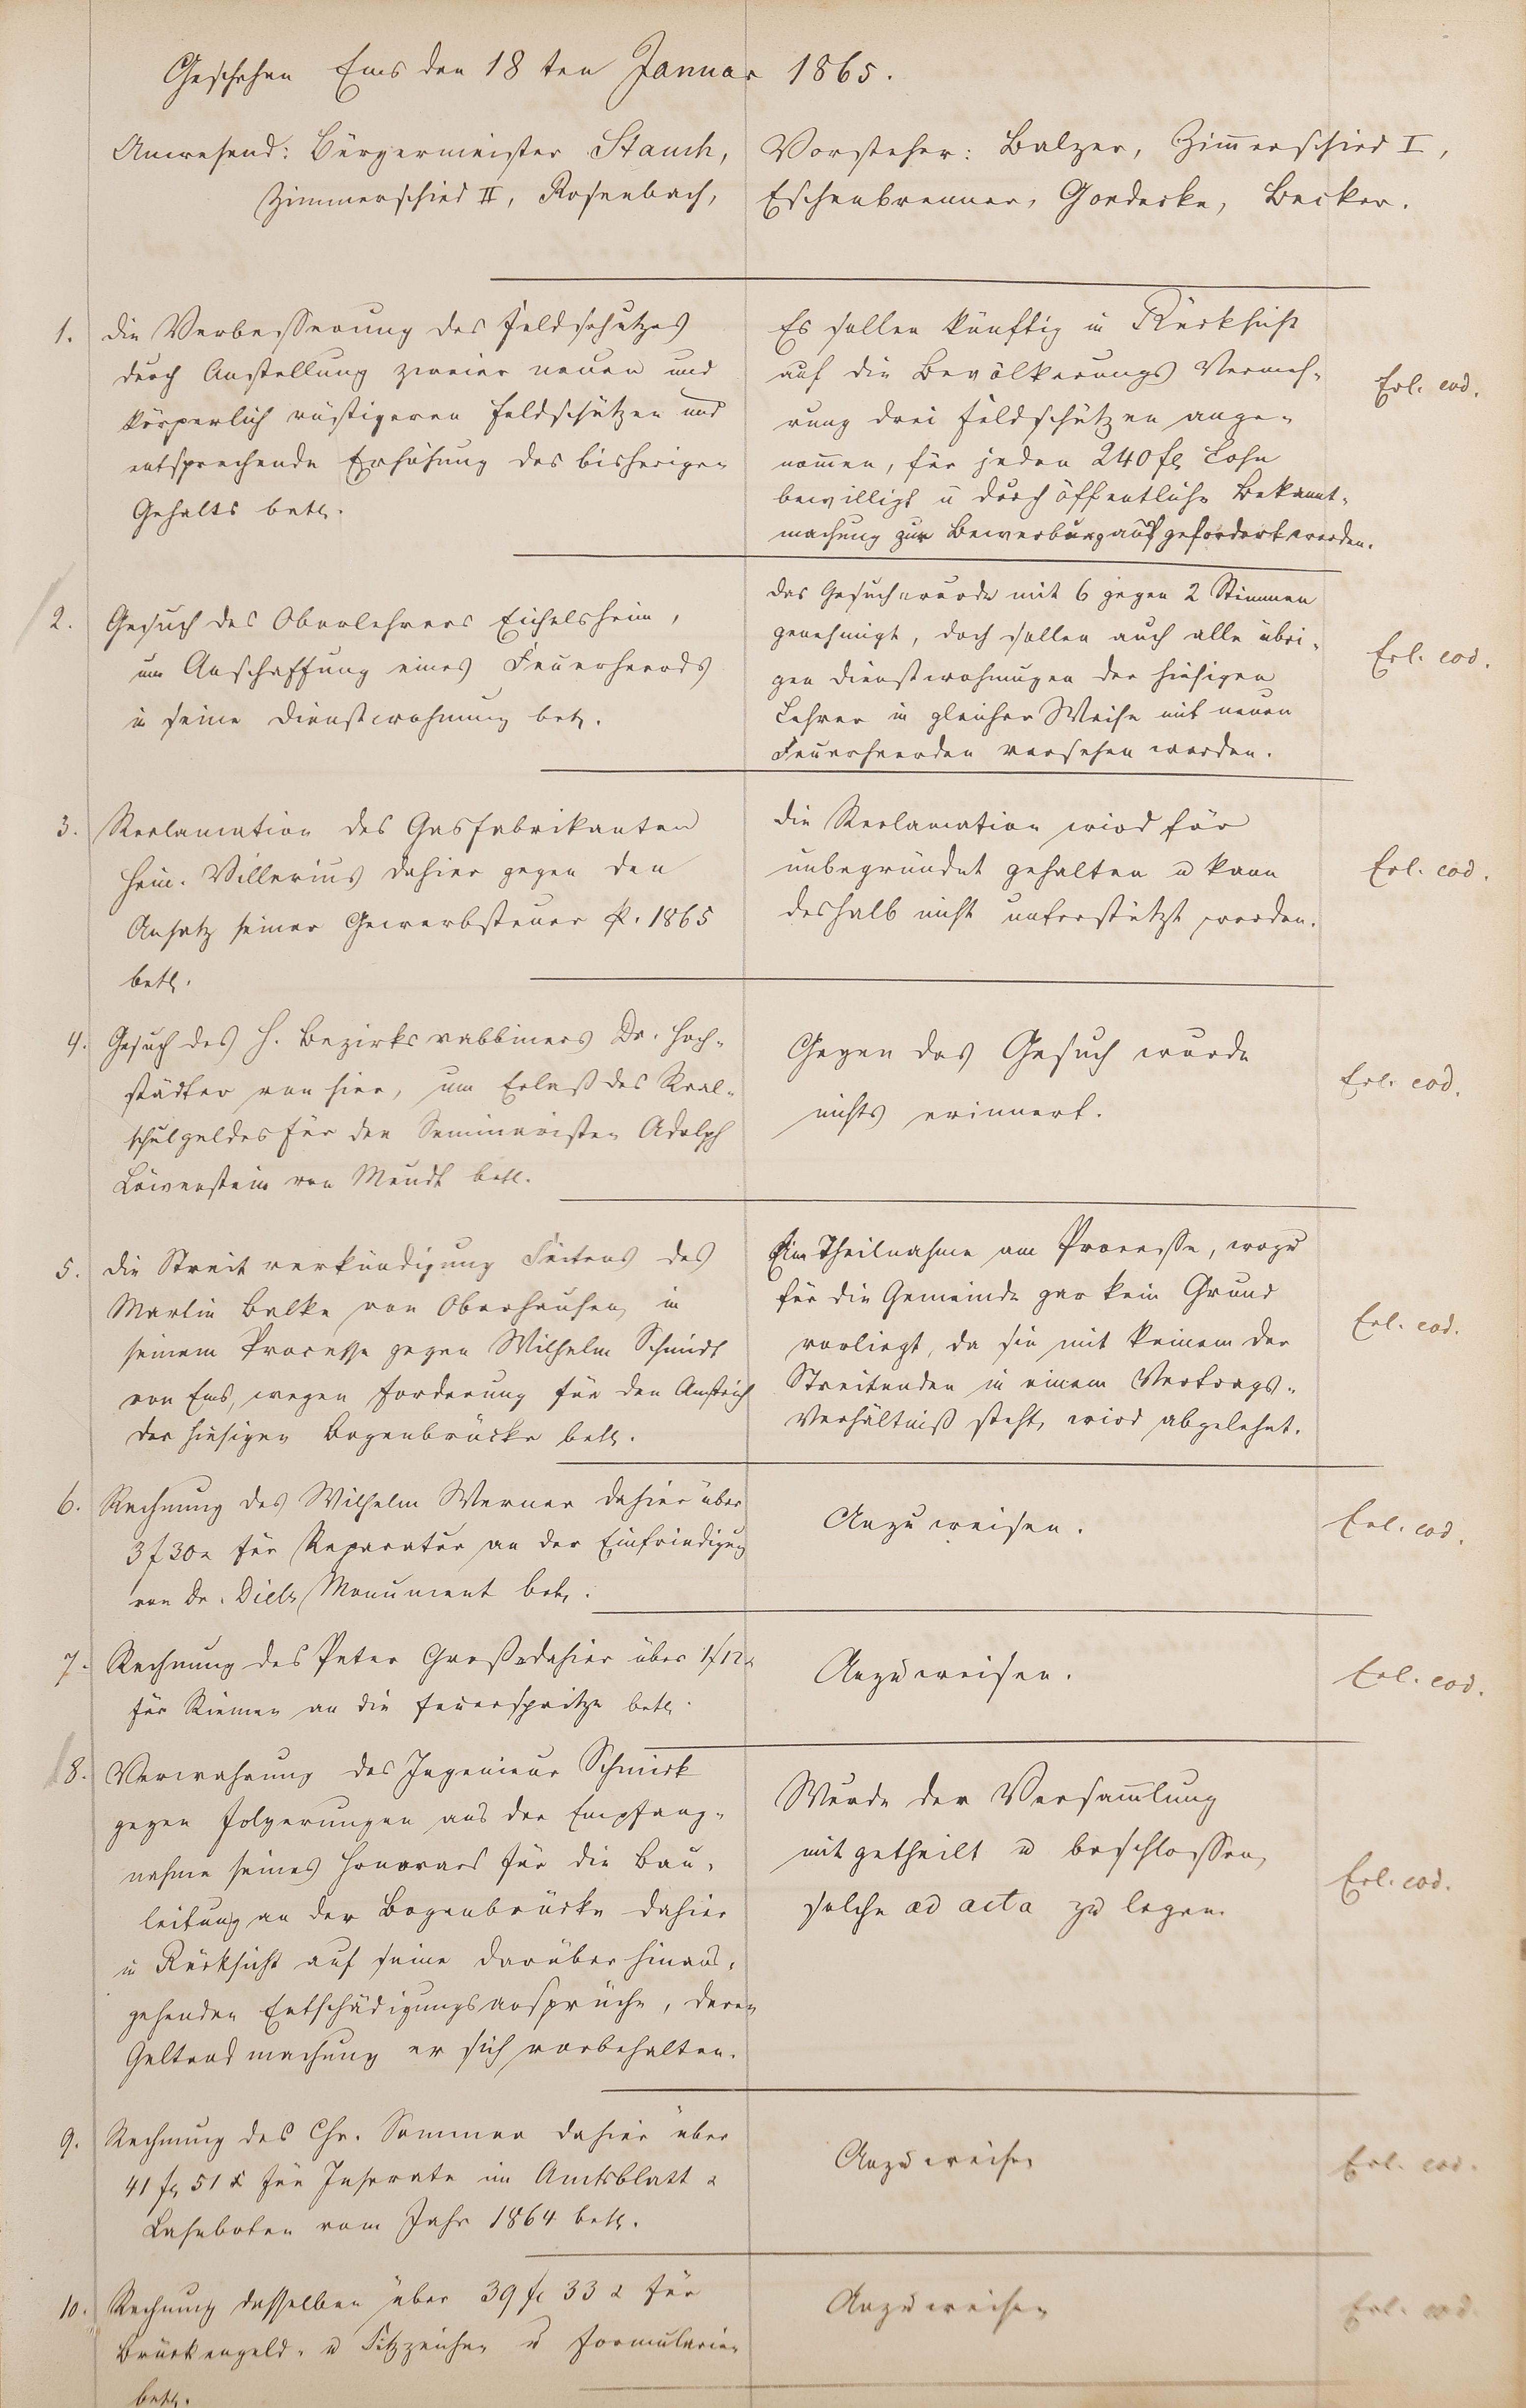 Geschehen Ems den 18ten Januar 1865.
Anwesend: Bürgermeister Stauch, Vorsteher: Balzer, Zimerschied I,
Zimmerschied II, Rosenbach, Eschenbrenner, Goedecke, Becker.
1. die Verbesserung des Feldschutzes
durch Anstellung zweier neuen und
körperlich rüstigeren Feldschützen und
entsprechende Erhöhung des bisherigen
Gehalts betr.
Es sollen künftig in Rücksicht
auf die Bevölkerungs Vermeh-
rung drei Feldschützen ange-
nommen, für jeden 240 fl Lohn
bewilligt u durch öffentliche Bekannt-
machung zur Bewerbung aufgefordert werden.
Erl. eod.
2. Gesuch des Oberlehrers Eichelsheim,
um Anschaffung eines Feuerheerds
in seine Dienstwohnung betr.
das Gesuch wurde mit 6 gegen 2 Stimmen
genehmigt, doch sollen auch alle übri-
gen Dienstwohnungen der hiesigen
Lehrer in gleicher Weise mit neuen
Feuerheerden versehen werden.
Erl. eod.
3. Reclamation des Gasfabrikanten
Hein. Villerius dahier gegen den
Ansatz seiner Gewerbsteuer p. 1865
betr.
die Reclamation wird für
unbegründet gehalten u kann
deshalb nicht unterstützt werden.
Erl. eod.
4. Gesuch des H. Bezirksrabbiners Dr. Hoch-
städter von hier, um Erlaß des Real-
schulgeldes für den Seminaristen Adolph
Löwenstein von Meudt betr.
Gegen das Gesuch wurde
nichts erinnert.
Erl. eod.
5. die Streitverkündigung Seitens des
Martin Balke von Oberhausen, in
seinem Processe gegen Wilhelm Schmidt
von Ems, wegen Forderung für den Anstrich
der hiesigen Bogenbrücke betr.
Eine Theilnahme am Processe, wozu
für die Gemeinde gar kein Grund
vorliegt, da sie mit keinem der
Streitenden in einem Vertrags-
Verhältniß steht, wird abgelehnt.
Erl. eod.
6. Rechnung des Wilhelm Werner dahier über
3 f 30 x für Reparatur an der Einfriedigung
von Dr. Diels Monument betr.
Anzuweisen.
Erl. eod.
7. Rechnung des Peter Große dahier über 1 f 12 x
für Riemen an die Feuerspritze betr.
Anzuweisen.
Erl. eod.
8. Verwahrung des Ingenieur Schmick
gegen Folgerungen aus der Empfang-
nahme seines Honorars für die Bau-
leitung an der Bogenbrücke dahier
in Rücksicht auf seine darüber hinaus-
gehenden Entschädigungsansprüche, deren
Geltendmachung er sich vorbehalten.
Wurde der Versammlung
mitgetheilt u beschlossen,
solche ad acta zu legen.
Erl. eod.
9. Rechnung des Chr. Sommer dahier über
41 fl 51 x für Inserate im Amtsblatt &
Lahnboten vom Jahr 1864 betr.
Anzuweisen
Erl. eod.
10. Rechnung desselben über 39 fl 33 x für
Brückengeld- u Sitzzeichen u Formularien
betr.
Anzuweisen
Erl. eod.